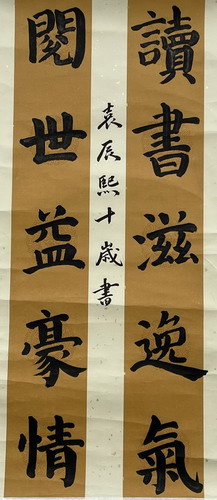 讀書滋逸氣
閱世益豪情
袁辰熙十歲書